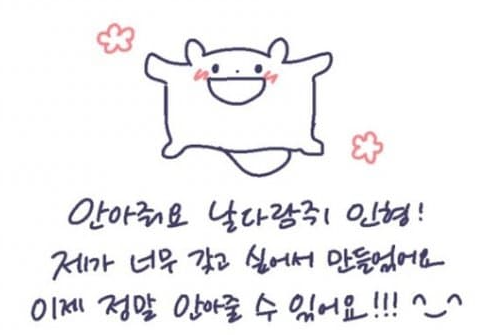 안아줘요 날다람쥐 인형!
제가 너무 갖고 싶어서 만들었어요
이제 정말 안아줄 수 있어요!!! ^_^